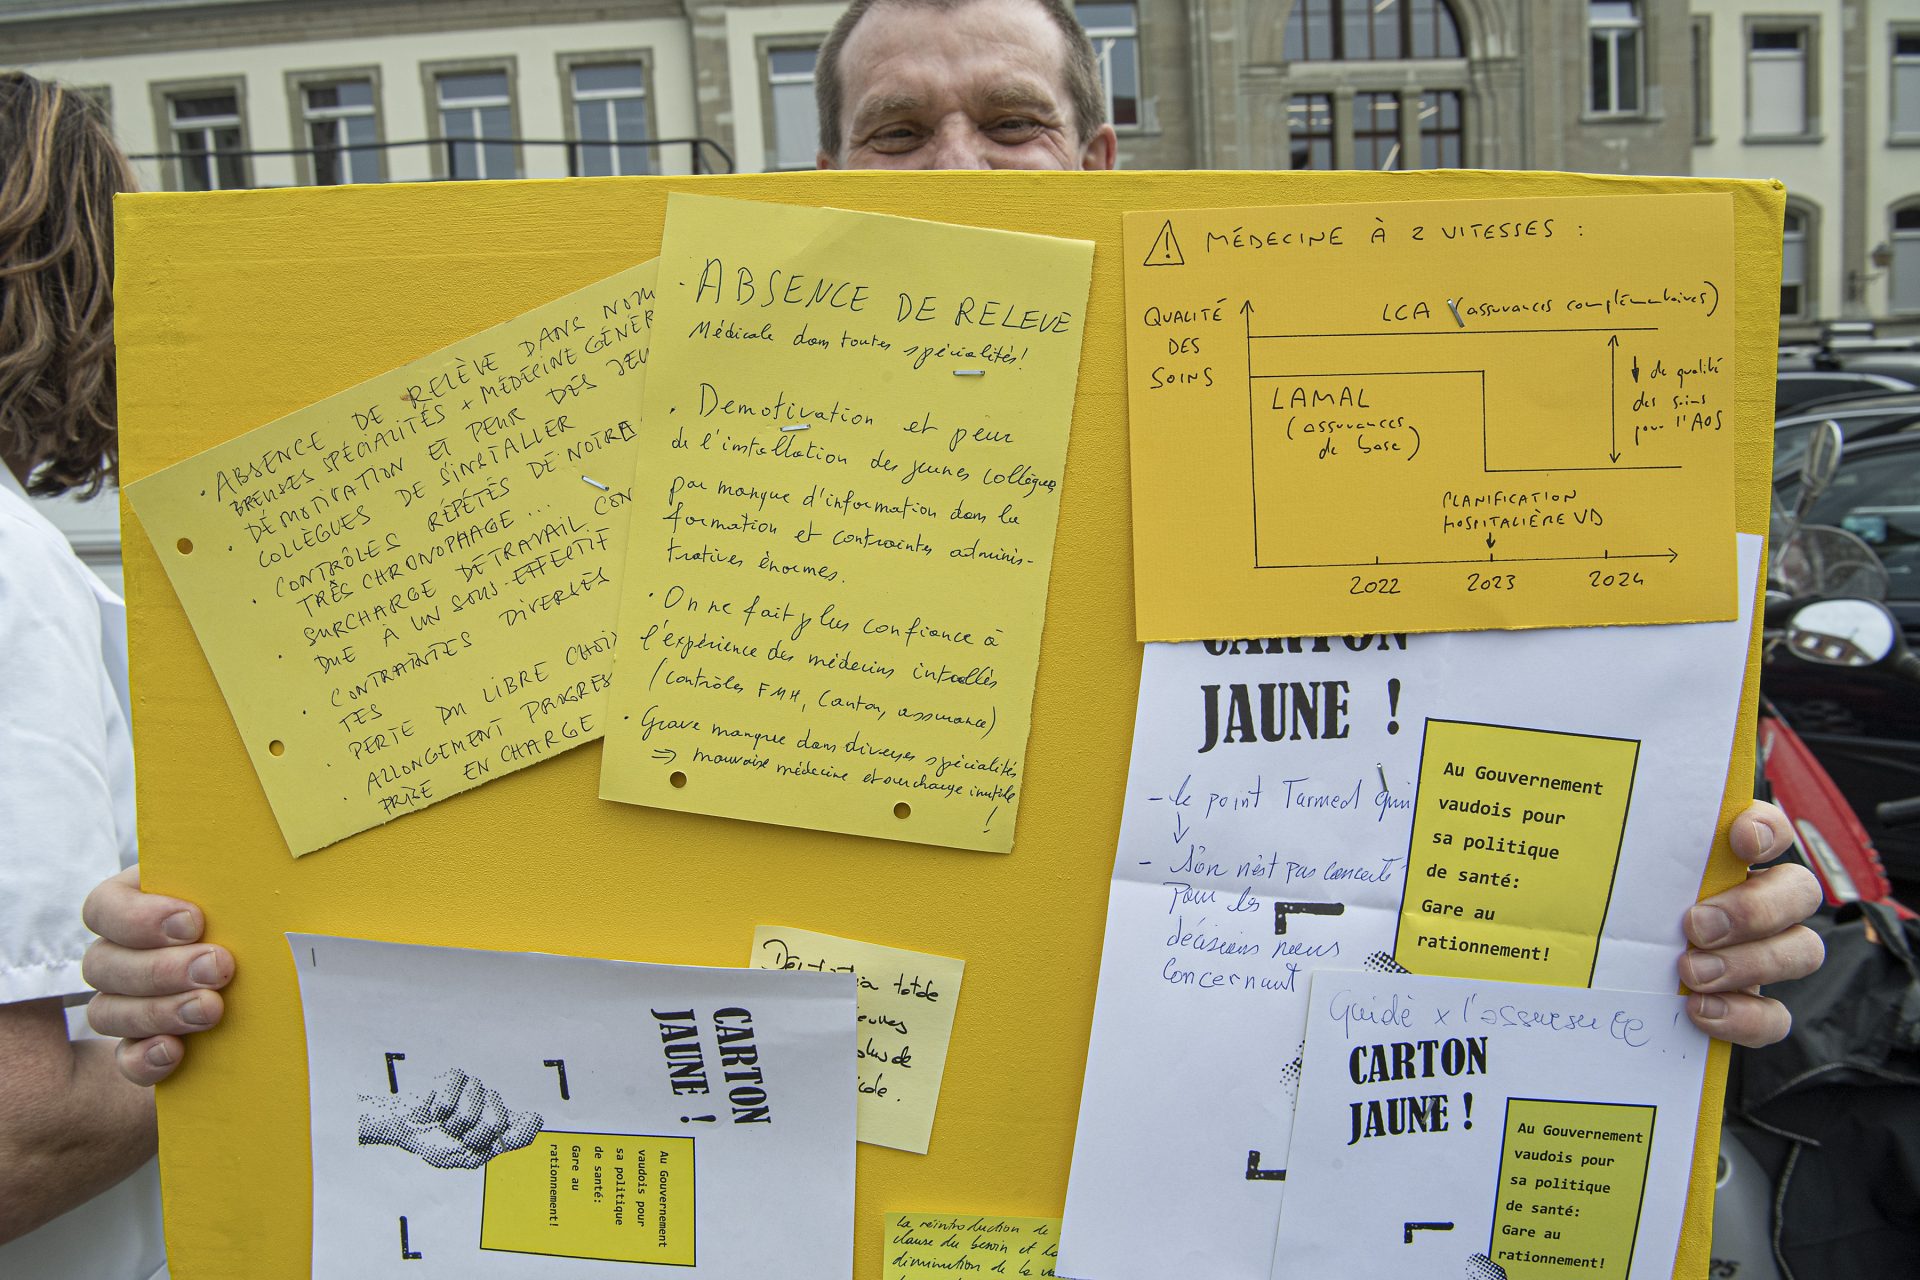 ABSENCE DE RELÈVE DANS NOM
BREUSES SPÉCIALITÉS + MÉDECINE GÉNÉR
DÉMOTIVATION ET PEUR DES JEU
COLLÈGUES DE S'INSTALLER
CONTRÔLES RÉPÉTÉS DE NOTRE
TRÈS CHRONOPHAGE ...
SURCHARGE DE TRAVAIL CON
DUE À UN SOUS-EFFECTIF
CONTRAINTES DIVERSES
TES
PERTE DU LIBRE CHOI
ALLONGEMENT PROGRES
PRISE EN CHARGE
· ABSENCE DE RELEVE
Médicale dans toutes spécialités!
· Demotivation et peur
de l'installation des jeunes collègues
par manque d'information dans la
formation et contraintes adminis-
tratives énormes.
· On ne fait plus confiance à
l'expérience des médecins installés
(contrôles FMH, Canton, assurance)
· Grave manque dans diverses spécialités
⇒ mauvaise médecine et surcharge inutile
!
⚠ MÉDECINE À 2 VITESSES :
QUALITÉ
DES
SOINS
LCA (assurances complémentaires)
LAMAL
(assurances
de base)
↓ de qualité
des soins
pour l'AOS
PLANIFICATION
HOSPITALIÈRE VD
2022 2023 2024
CARTON
JAUNE !
- le point Tarmed qui
- Si on n'est pas concerté
Pour les
décisions nous
concernant
Au Gouvernement
vaudois pour
sa politique
de santé:
Gare au
rationnement!
Guidé x l'assurance !
CARTON
JAUNE !
Au Gouvernement
vaudois pour
sa politique
de santé:
Gare au
rationnement!
CARTON
JAUNE !
Au Gouvernement
vaudois pour
sa politique
de santé:
Gare au
rationnement!
totale
la réintroduction de
clause du besoin et la
diminution de la